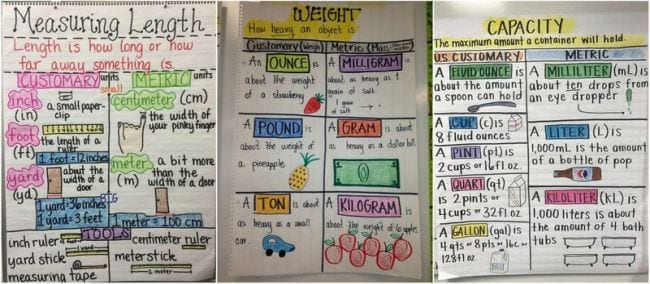 Measuring Length
Length is how long or how
far away something is.
CUSTOMARY units
inch
(in)
a small paper-
clip
foot
(ft)
the length of a
ruler
1 foot = 12 inches
yard
(yd)
about the
width of a
door
1 yard = 36 inches
1 yard = 3 feet
small
BIG
METRIC units
centimeter (cm)
the width of
your pinky finger
meter
(m)
a bit more
than the
width of a door
1 meter = 100 cm
TOOLS
inch ruler
yard stick
1 yard
measuring tape
centimeter ruler
meterstick
1 meter
WEIGHT
How heavy an object is.
Customary (Weigh)
An OUNCE is
about the weight
of a strawberry
A POUND is
about the weight of
a pineapple
A TON is about
as heavy as a small
car.
Metric (Mass
A MILLIGRAM is
about as heavy as 1
grain of salt.
1 grain
of salt
A GRAM is about
as heavy as a dollar bill
A KILOGRAM is
about the weight of 6 apples
CAPACITY
The maximum amount a container will hold.
U.S. CUSTOMARY
A FLUID OUNCE is
about the amount
a spoon can hold
A CUP (c) is
8 fluid ounces
A PINT (pt) is
2 cups or 16 fl.oz.
A QUART (qt)
is 2 pints or
4 cups or 32 fl.oz.
A GALLON (gal) is
4 qts or 8 pts or 16c or
128 fl.oz.
METRIC
A MILLILITER (mL) is
about ten drops from
an eye dropper
A LITER (L) is
1,000 mL is the amount
of a bottle of pop
A KILOLITER (kL) is
1,000 liters is about
the amount of 4 bath
tubs